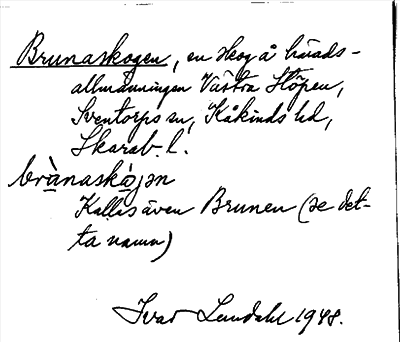 Brunaskogen, en skog å härads-
allmänningen Västra Höpen,
Sventorps sn, Kåkinds hd,
Skarab. l.
brùnaskòjən
Kallas även Brunen (se det-
ta namn)
Ivar Lundahl 1948.